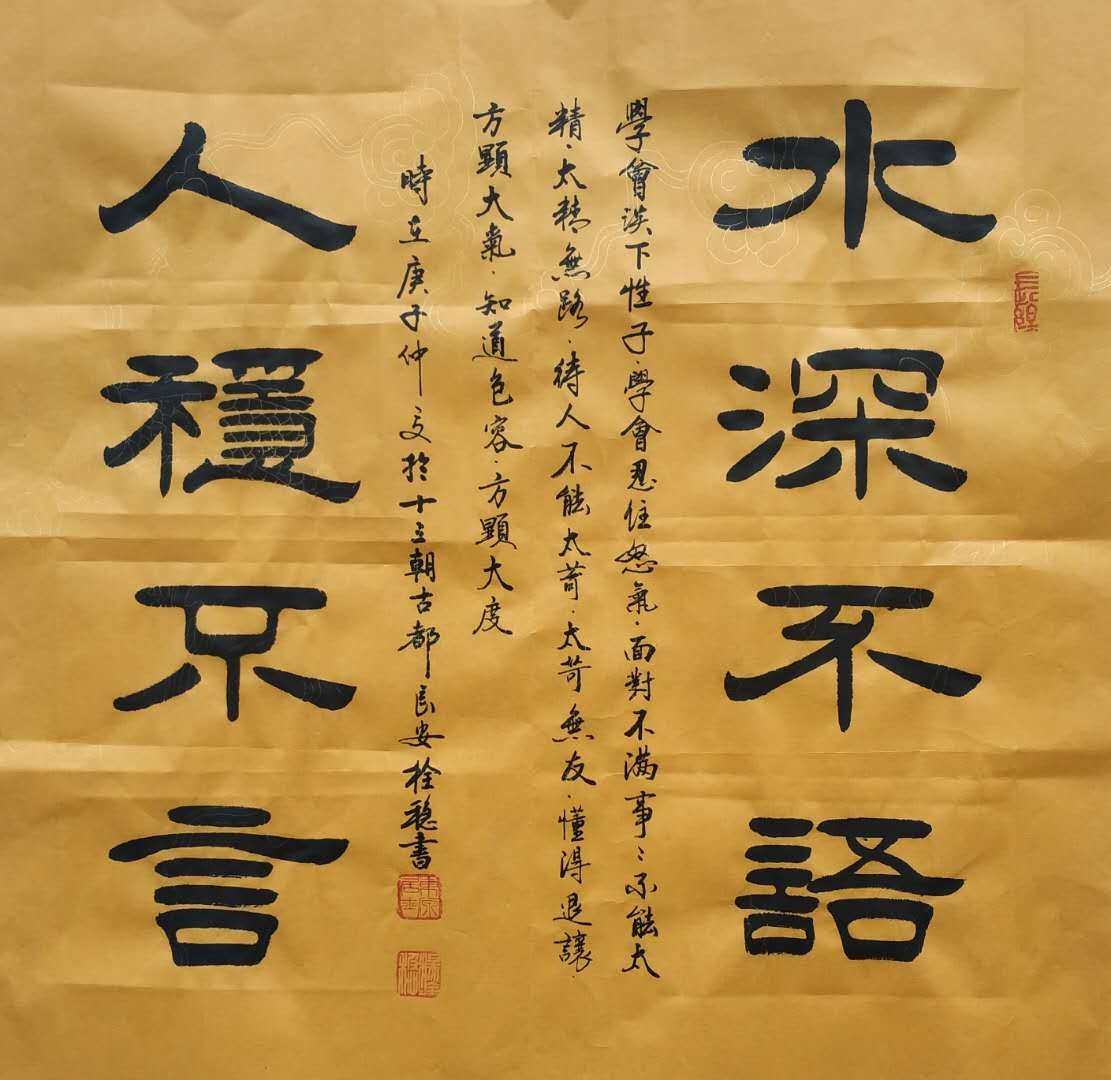 水深不語
學會淡下性子學會忍住怒氣面對不滿事〻不能太
精太精無路待人不能太苛太苛無友懂得退讓
方顯大氣知道包容方顯大度
時在庚子仲夏於十三朝古都長安栓穩書
人穩不言